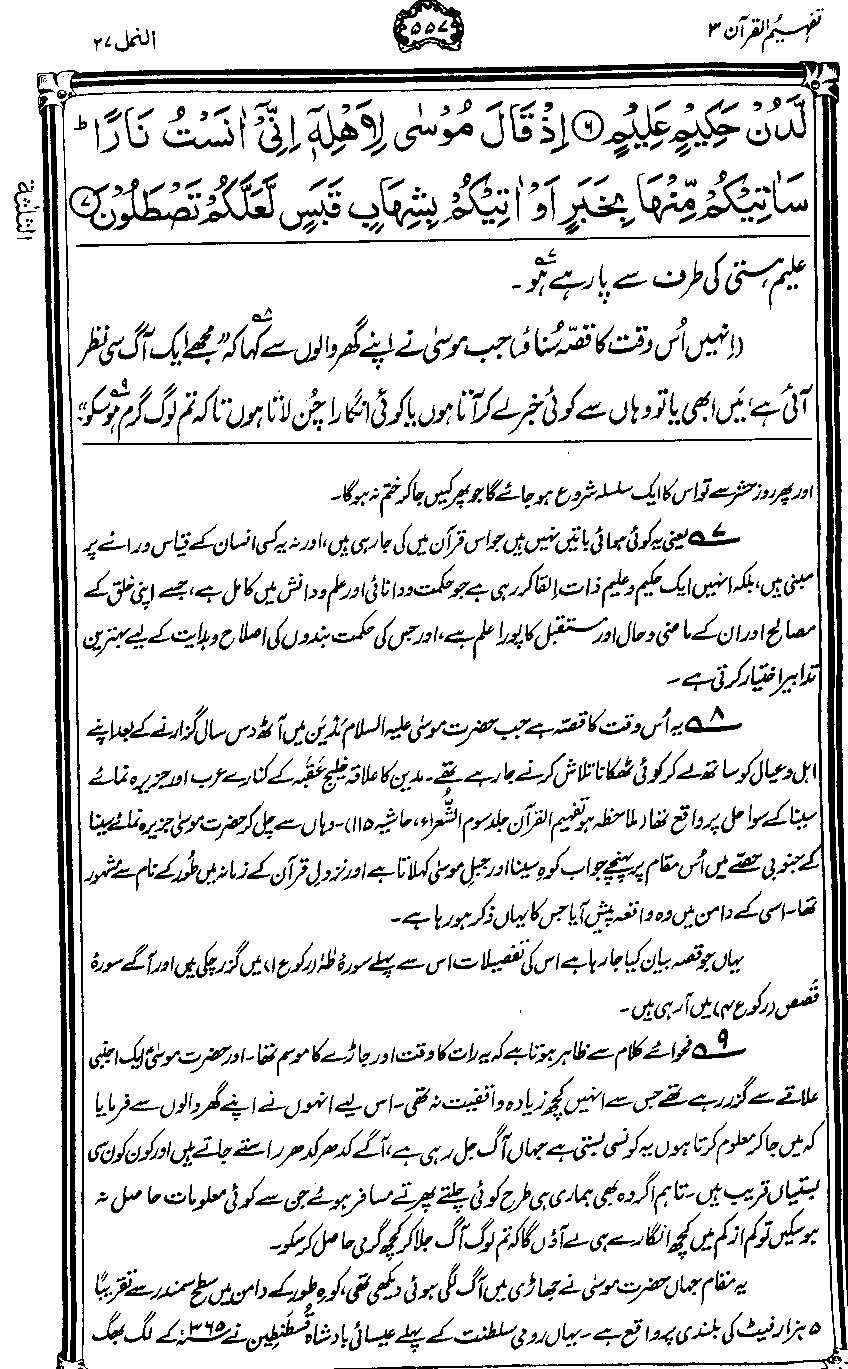 تفہیم القرآن ۳
۵۵۷
النمل ۲۷
لَّدُنْ حَكِيْمٍ عَلِيْمٍ ۶ اِذْ قَالَ مُوْسٰى لِاَهْلِهٖۤ اِنِّىْۤ اٰنَسْتُ نَارًا ؕ
سَاٰتِيْكُمْ مِّنْهَا بِخَبَرٍ اَوْ اٰتِيْكُمْ بِشِهَابٍ قَبَسٍ لَّعَلَّكُمْ تَصْطَلُوْنَ ۷
الثلثۃ
علیم ہستی کی طرف سے پا رہے ہو۷۔
(اِنہیں اُس وقت کا قصّہ سُناؤ) جب موسیٰ نے اپنے گھر والوں سے کہا۸ کہ ”مجھے ایک آگ سی نظر
آئی ہے، میں ابھی یا تو وہاں سے کوئی خبر لے کر آتا ہوں یا کوئی انگارا چُن لاتا ہوں تاکہ تم لوگ گرم ہو سکو۹“
اور پھر روزِ حشر سے تو اس کا ایک سلسلہ شروع ہو جائے گا جو پھر کہیں جا کر ختم نہ ہوگا۔
۷ یعنی یہ کوئی ہوائی باتیں نہیں ہیں جو اس قرآن میں کی جا رہی ہیں، اور نہ یہ کسی انسان کے قیاس ورائے پر
مبنی ہیں، بلکہ انہیں ایک حکیم و علیم ذات اِلقا کر رہی ہے جو حکمت و دانائی اور علم و دانش میں کامل ہے، جسے اپنی خلق کے
مصالح اور ان کے ماضی و حال اور مستقبل کا پورا علم ہے، اور جس کی حکمت بندوں کی اصلاح و ہدایت کے لیے بہترین
تدابیر اختیار کرتی ہے۔
۸ یہ اُس وقت کا قصّہ ہے جب حضرت موسیٰ علیہ السلام مَدْیَن میں آٹھ دس سال گزارنے کے بعد اپنے
اہل و عیال کو ساتھ لے کر کوئی ٹھکانا تلاش کرنے جا رہے تھے۔ مدین کا علاقہ خلیج عَقَبہ کے کنارے عرب اور جزیرہ نمائے
سینا کے سواحل پر واقع تھا (ملاحظہ ہو تفہیم القرآن جلد سوم الشُّعراء، حاشیہ ۱۱۵)۔ وہاں سے چل کر حضرت موسیٰ جزیرہ نمائے سینا
کے جنوبی حصّے میں اُس مقام پر پہنچے جو اب کوہِ سینا اور جبل موسیٰ کہلاتا ہے اور نزولِ قرآن کے زمانہ میں طُور کے نام سے مشہور
تھا۔ اسی کے دامن میں وہ واقعہ پیش آیا جس کا یہاں ذکر ہو رہا ہے۔
یہاں جو قصہ بیان کیا جا رہا ہے اس کی تفصیلات اس سے پہلے سورۂ طٰہٰ (رکوع ۱) میں گزر چکی ہیں اور آگے سورۂ
قَصَص (رکوع ۴) میں آ رہی ہیں۔
۹ فحوائے کلام سے ظاہر ہوتا ہے کہ یہ رات کا وقت اور جاڑے کا موسم تھا۔ اور حضرت موسیٰؑ ایک اجنبی
علاقے سے گزر رہے تھے جس سے انہیں کچھ زیادہ واقفیت نہ تھی۔ اس لیے انہوں نے اپنے گھر والوں سے فرمایا
کہ میں جا کر معلوم کرتا ہوں یہ کونسی بستی ہے جہاں آگ جل رہی ہے، آگے کدھر کدھر راستے جاتے ہیں اور کون کون سی
بستیاں قریب ہیں۔ تاہم اگر وہ بھی ہماری ہی طرح کوئی چلتے پھرتے مسافر ہوئے جن سے کوئی معلومات حاصل نہ
ہو سکیں تو کم از کم میں کچھ انگارے ہی لے آؤں گا کہ تم لوگ آگ جلا کر کچھ گرمی حاصل کر سکو۔
یہ مقام جہاں حضرت موسیٰ نے جھاڑی میں آگ لگی ہوئی دیکھی تھی، کوہِ طُور کے دامن میں سطح سمندر سے تقریبًا
۵ ہزار فیٹ کی بلندی پر واقع ہے۔ یہاں رومی سلطنت کے پہلے عیسائی بادشاہ قُسطَنطِین نے ۳۶۵ء کے لگ بھگ